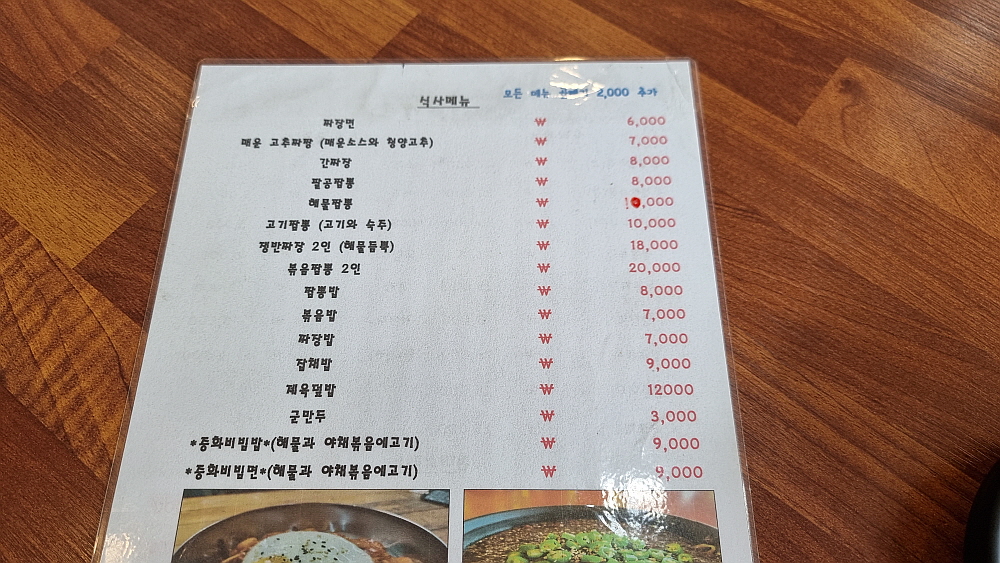 식사메뉴 모든 메뉴 곱빼기 2,000 추가
짜장면 ₩ 6,000
매운 고추짜짱 (매운소스와 청양고추) ₩ 7,000
간짜장 ₩ 8,000
팔공짬뽕 ₩ 8,000
해물짬뽕 ₩ ,000
고기짬뽕 (고기와 숙주) ₩ 10,000
쟁반짜장 2인 (해물듬뿍) ₩ 18,000
볶음짬뽕 2인 ₩ 20,000
짬뽕밥 ₩ 8,000
볶음밥 ₩ 7,000
짜장밥 ₩ 7,000
잡채밥 ₩ 9,000
제육덮밥 ₩ 12000
군만두 ₩ 3,000
*중화비빔밥*(해물과 야채볶음에고기) ₩ 9,000
*중화비빔면*(해물과 야채볶음에고기) ₩ 9,000